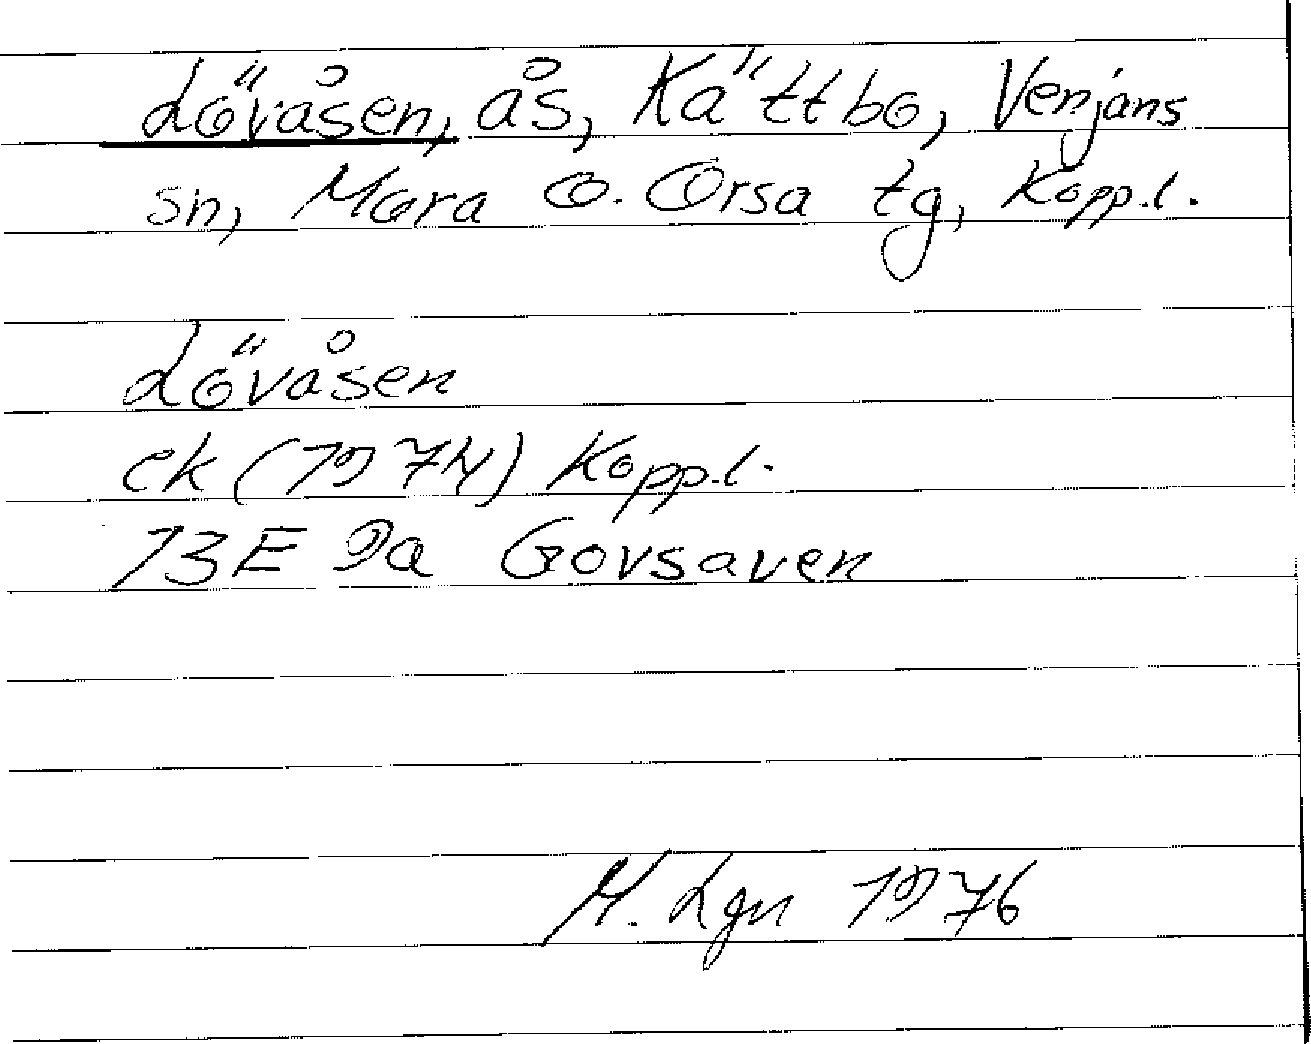 Lövåsen, ås, Kättbo, Venjans
sn, Mora o. Orsa tg, Kopp.l.
Lövåsen
ek (1974) Kopp.l.
13E 9a Govsaven
M. Lgn 1976